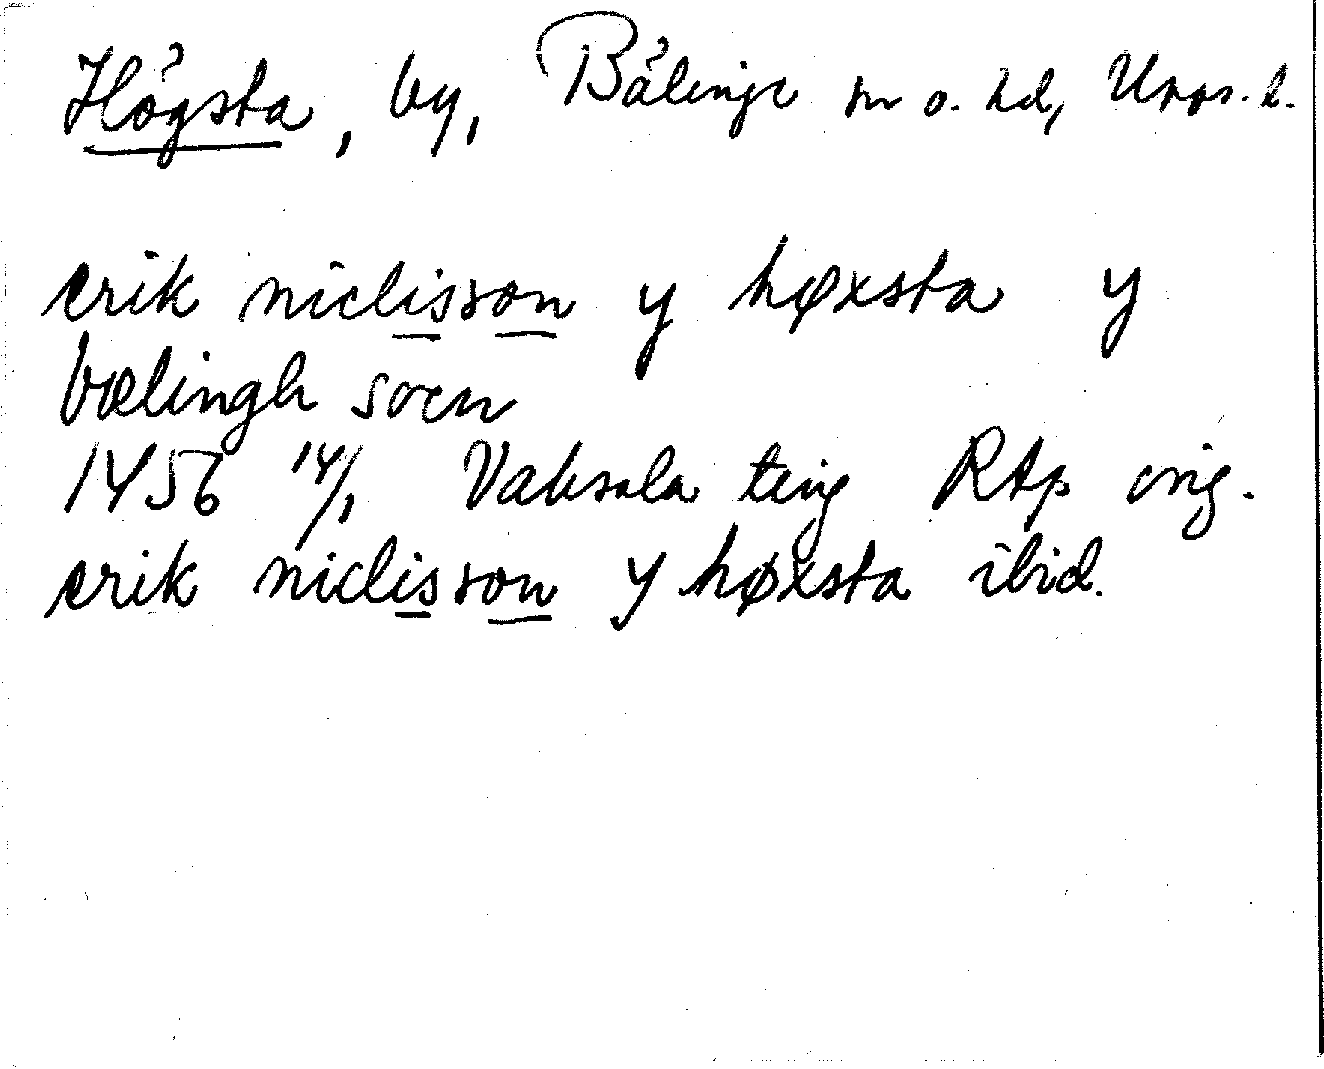 Högsta, by, Bälinge sn o. hd, Upps. l.
erik niclisson y høxsta y
bælingh soen
1456 14/1 Vaksala ting RAp orig.
erik niclisson y høxsta ibid.